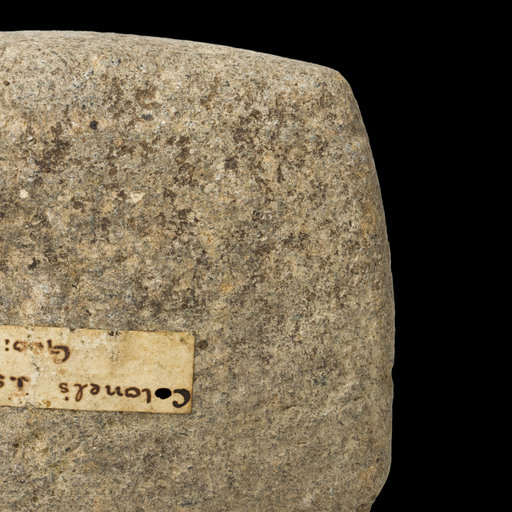 Colonel's Is
Geo: